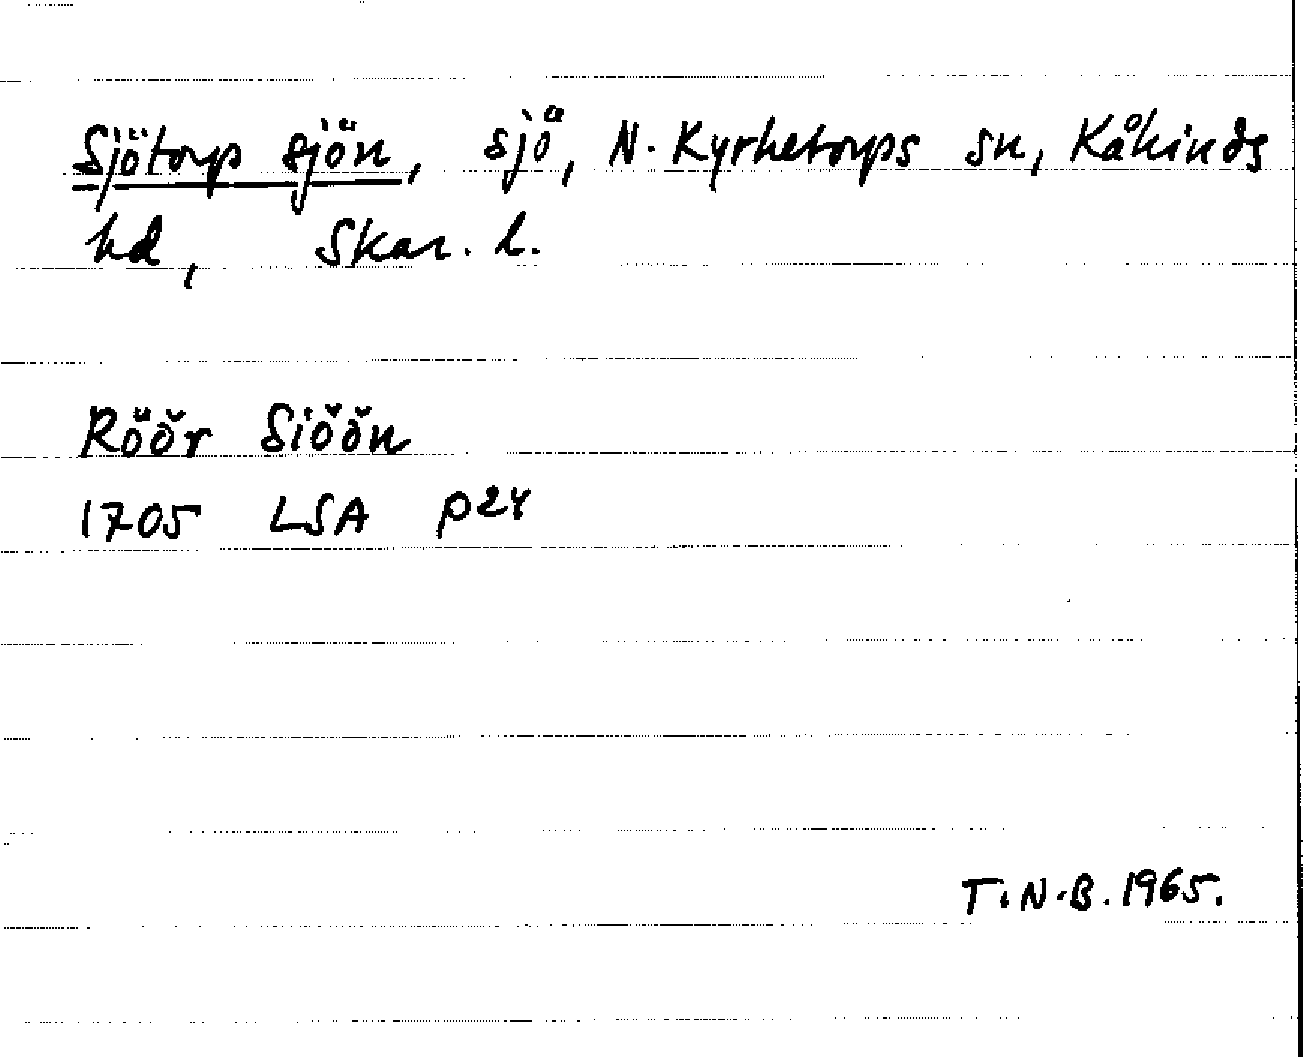 Sjötorp sjön, sjö, N. Kyrketorps sn, Kåkinds
hd, Skar. l.
Röör Siöön
1705 LSA P24
T.N.B. 1965.